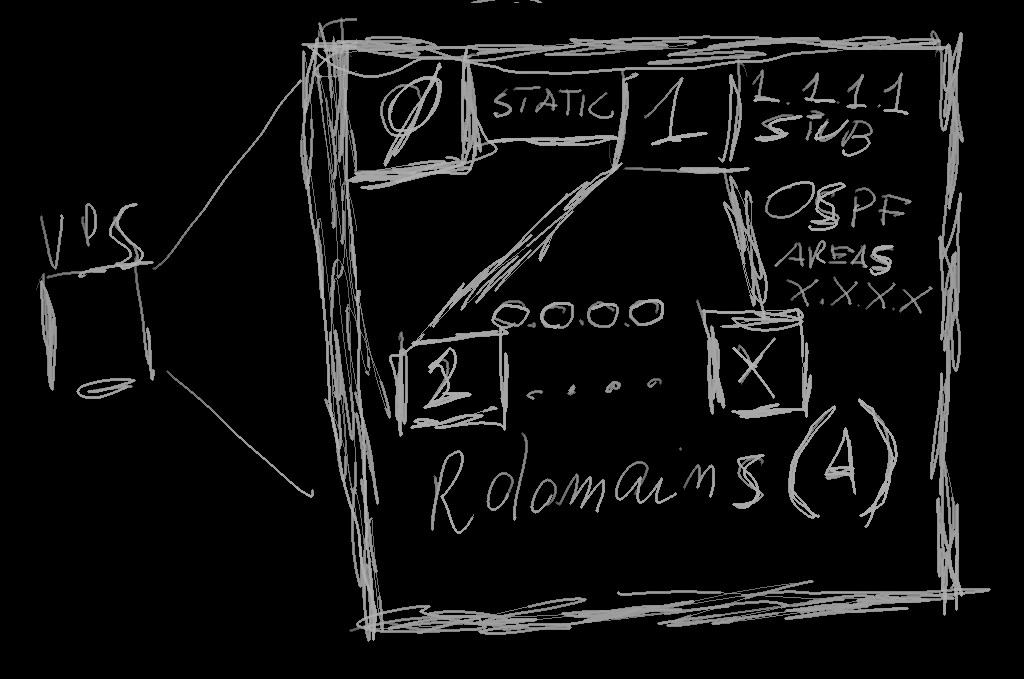 VPS
0 STATIC 1 1.1.1.1
STUB
OSPF
AREAS
X.X.X.X
0.0.0.0
2 .... X
Rdomains (4)